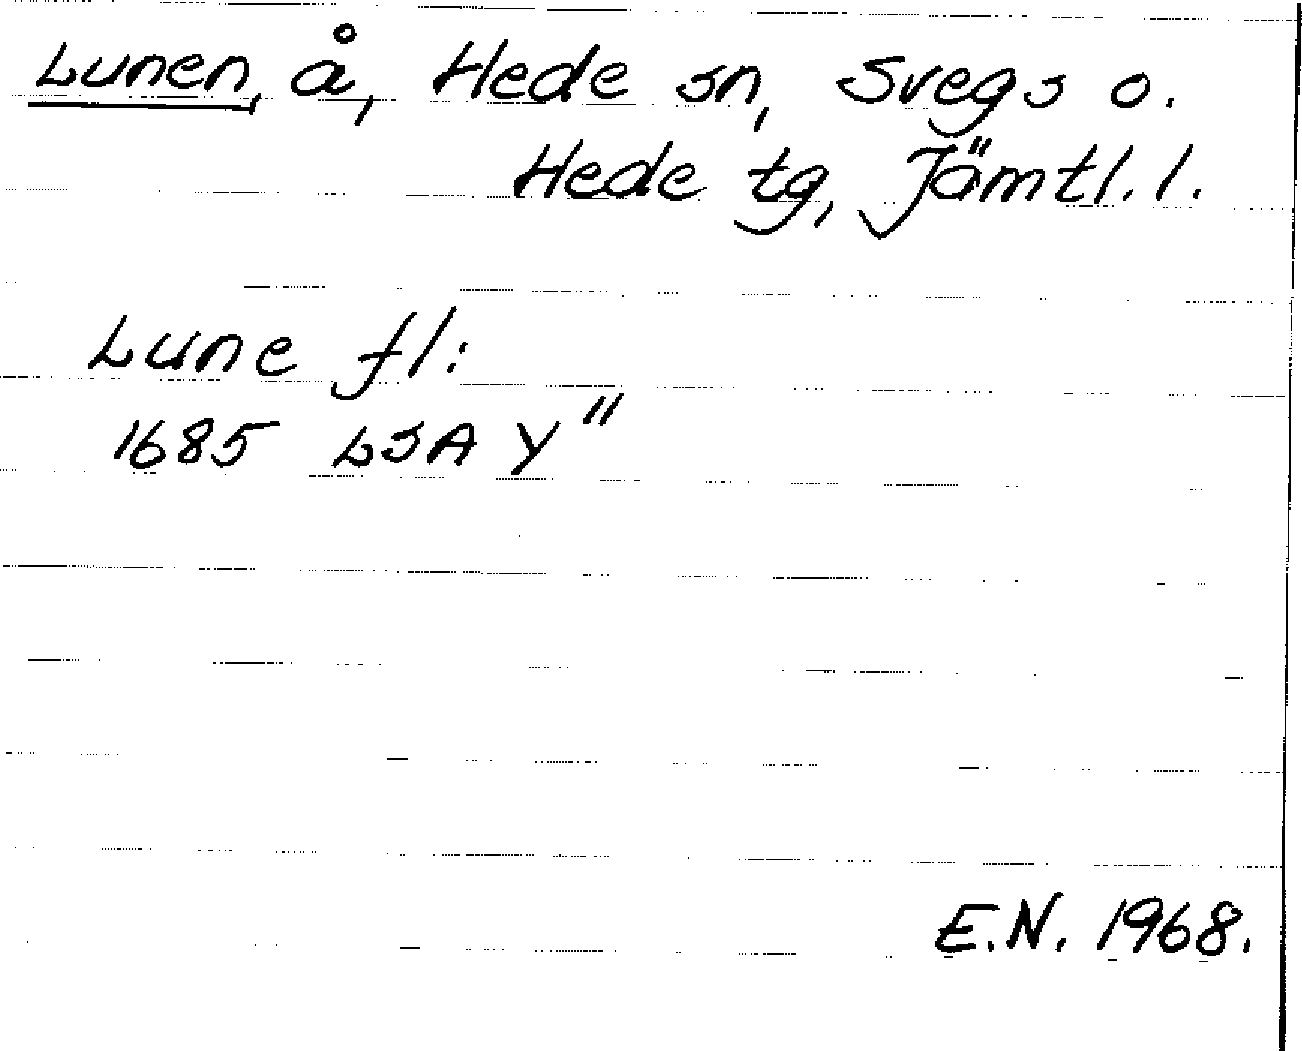 Lunen, å, Hede sn, Svegs o.
Hede tg, Jämtl. l.
Lune fl:
1685 LSA Y"
E.N. 1968.